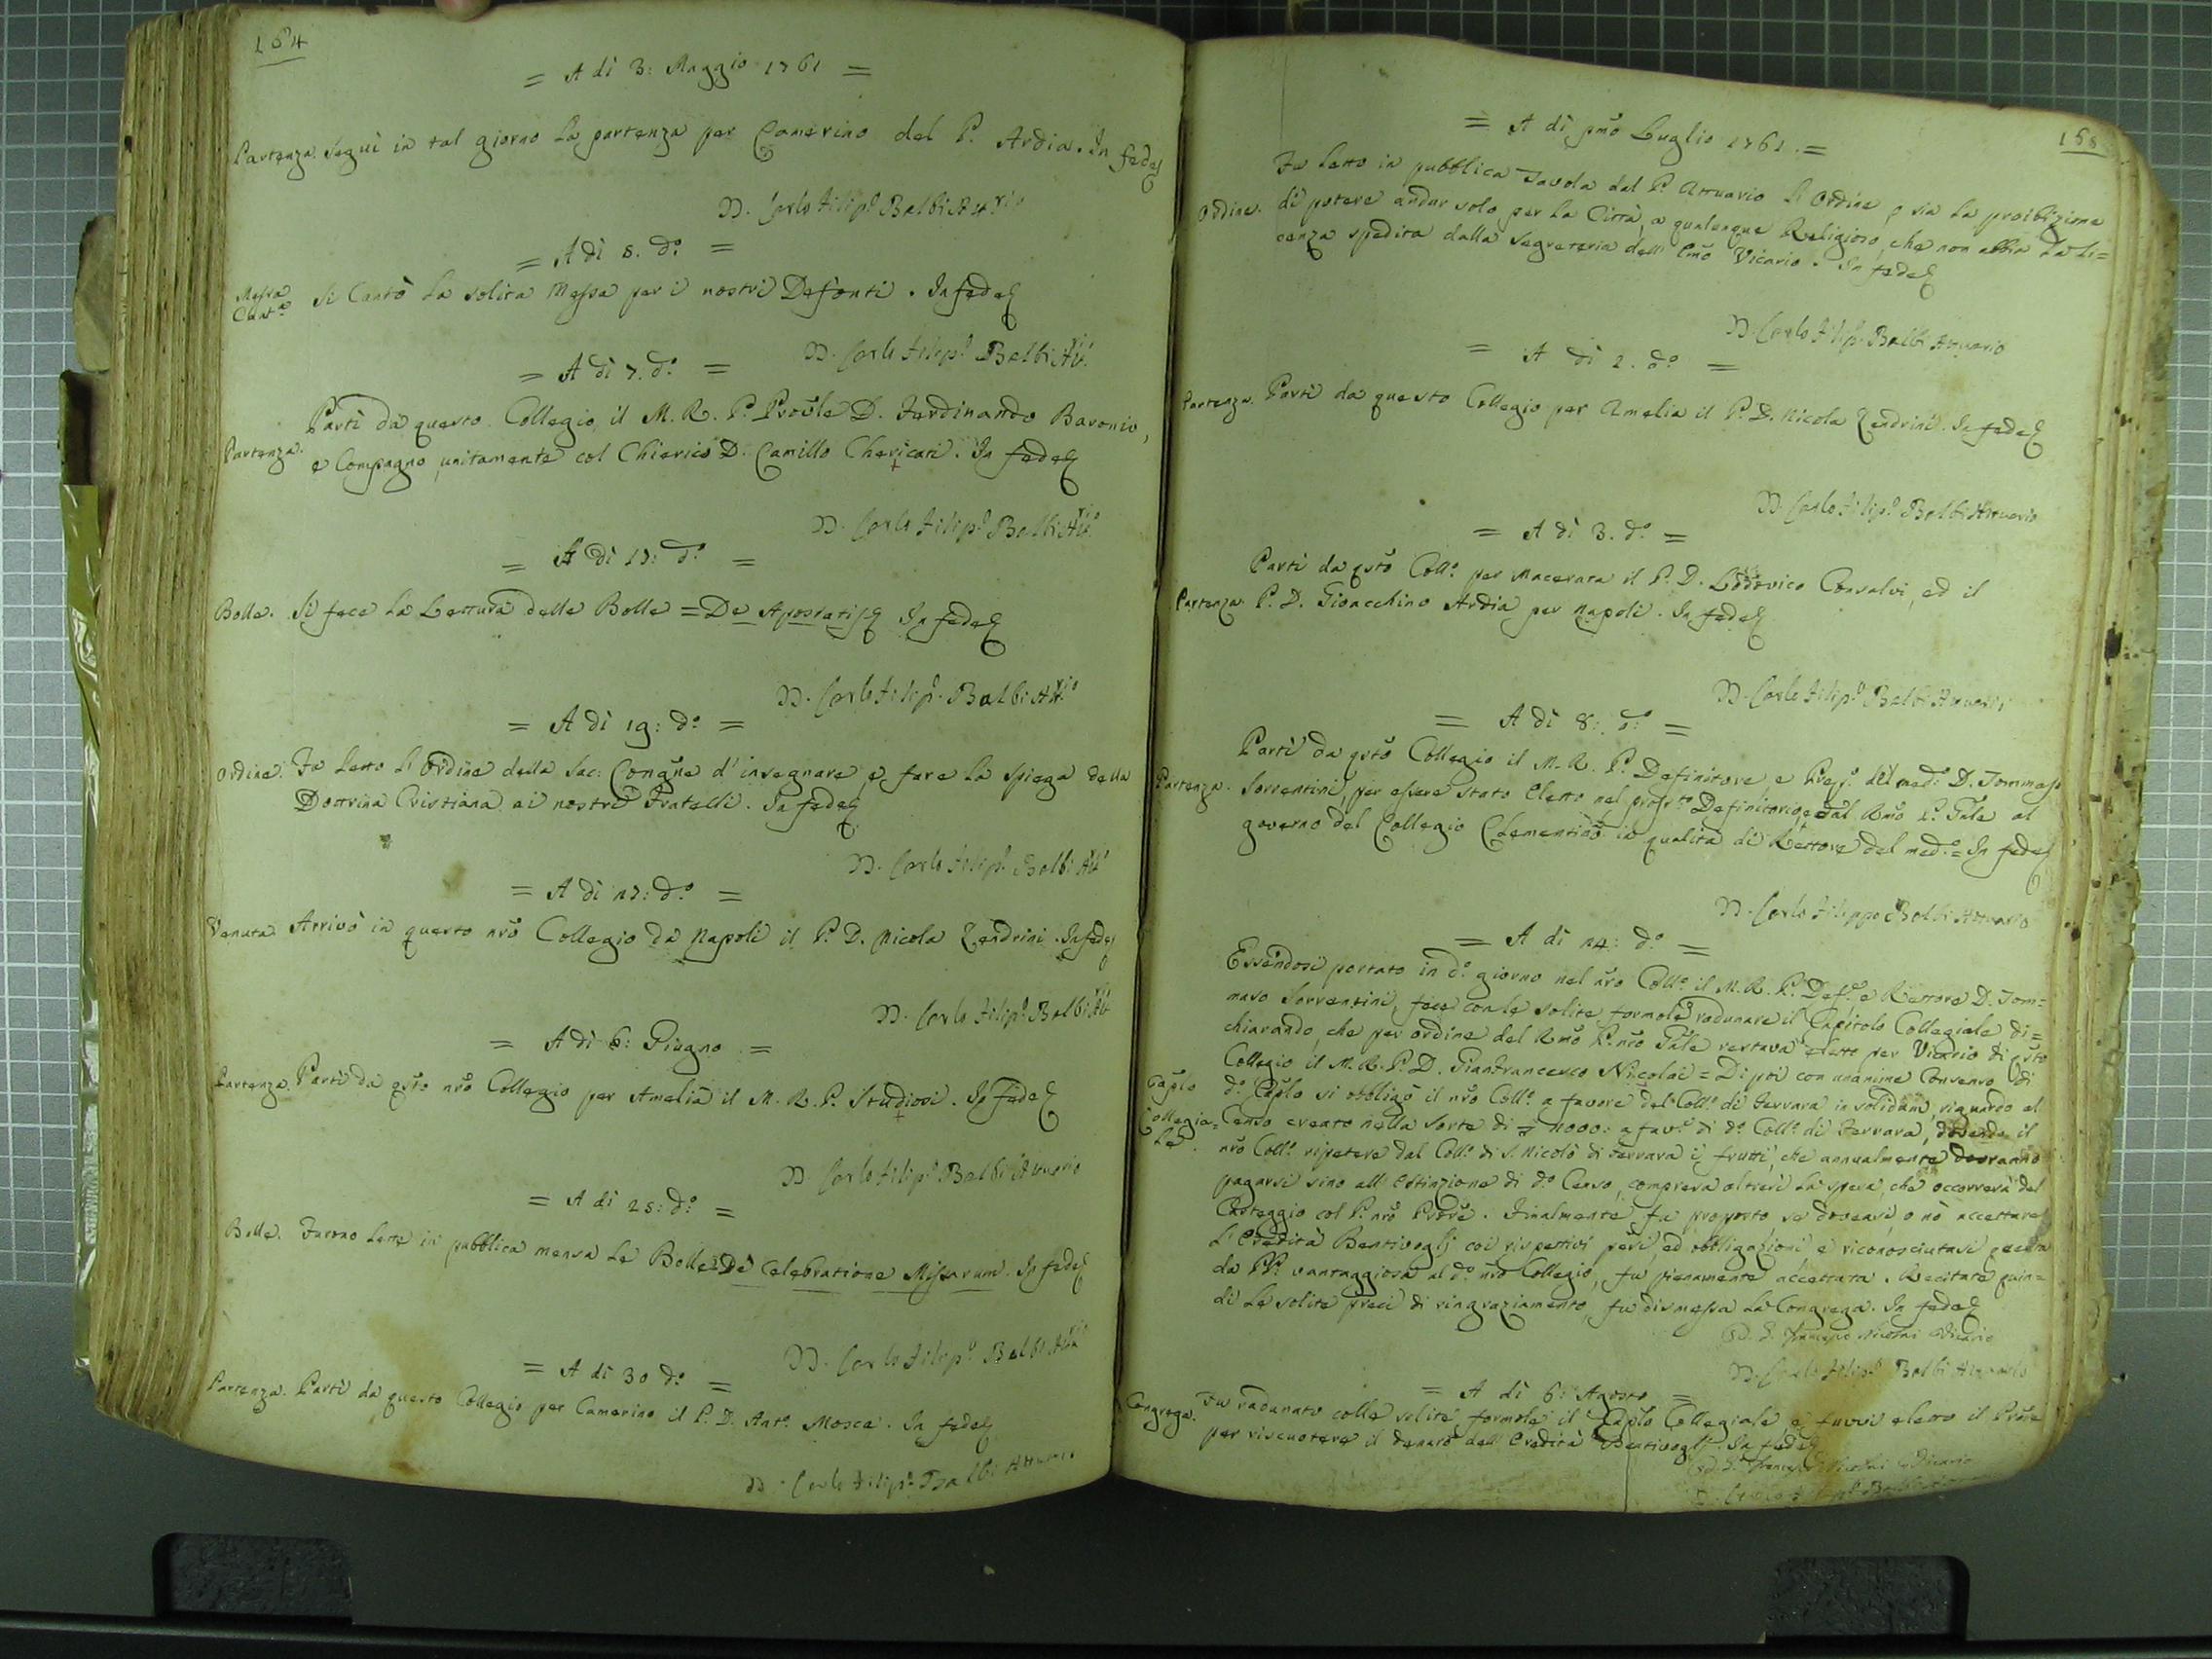 164
= A dì 3: Maggio 1761 =
Partenza. Seguì in tal giorno la partenza per Camerino del P. Ardia. In fede
D. Carlo Filip.º Balbi Att.rio
= A dì 5. d.º =
Messa Cant.ª Si Cantò la solita Messa per i nostri Defonti. In fede
D. Carlo Filip.º Balbi Att.rio
= A dì 7. d.º =
Partì da questo Collegio il M. R. P. Proule D. Ferdinando Baronio,
Partenza. e Compagno, unitamente col Chierico D. Camillo Chericati. In fede
D. Carlo Filip.º Balbi Att.rio
= A dì 17: d.º =
Bolle. Si fece la Lettura delle Bolle = De Apostatis In fede
D. Carlo Filip.º Balbi Att.rio
= A dì 19: d.º =
Ordine. Fu letto l'Ordine della Sac: Congñe d'insegnare, e fare la spiega della
Dottrina Cristiana ai nostri Fratelli. In fede
D. Carlo Filip.º Balbi Att.rio
= A dì 27: d.º =
Venuta Arrivò in questo nrõ Collegio da Napoli il P. D. Nicola Zendrini. In fede
D. Carlo Filip.º Balbi Att.rio
= A dì 6: Giugno =
Partenza. Partì da qsto nrõ Collegio per Amelia il M. R. P. Studiosi. In fede
D. Carlo Filip.º Balbi Attuario
= A dì 25: d.º =
Bolle. Furono lette in pubblica mensa le Bolle = De Celebratione Missarum. In fede
D. Carlo Filip.º Balbi Att.rio
= A dì 30 d.º =
Partenza. Partì da questo Collegio per Camerino il P. D. Ant.º Mosca. In fede
D. Carlo Filip.º Balbi Attuario
165
= A dì pmõ Luglio 1761. =
Fu letto in pubblica Tavola dal P. Attuario l'Ordine, o sia la proibizione
Ordine. di potere andar solo per la Città, a qualunque Religioso, che non abbia la li=
cenza spedita dalla Segreteria dell' Emõ Vicario. In fede
D. Carlo Filip.º Balbi Attuario
= A dì 2. d.º =
Partenza. Partì da questo Collegio per Amelia il P. D. Nicola Zendrini. In fede
D. Carlo Filip.º Balbi Attuario
= A dì 3. d.º =
Partì da qsto Coll.º per Macerata il P. D. Lodovico Consalvi, ed il
Partenza. P. D. Gioacchino Ardia per Napoli. In fede
D. Carlo Filip.º Balbi Attuario
= A dì 8: d.º =
Partì da qsto Collegio il M. R. P. Definitore, e Prep.º del med.º D. Tommaso
Partenza. Sorrentini, per essere stato eletto nel Definitorio, e dal Rmõ P. Gñle al
governo del Collegio Clementino in qualità di Rettore del med.º = In fede
D. Carlo Filippo Balbi Attuario
= A dì 14: d.º =
Essendosi portato in d.º giorno nel nrõ Coll.º il M. R. P. Def.e e Rettore D. Tom=
maso Sorrentini, fece con le solite formole radunare il Capitolo Collegiale di=
chiarando, che per ordine del Rmõ P. nrõ Gñle restava eletto per Vicario di qsto
Collegio il M. R. P. D. Gianfrancesco Nicolai = Di poi con unanime Consenso di
Caplo d.º Caplo si obbligò il nrõ Coll.º a favore del Coll.º di Ferrara in solidum, riguardo al
Collegia= Censo creato nella sorte di 1000: a fav.e di d.º Coll.º di Ferrara, dovendo il
le. nrõ Coll.º ripetere dal Coll.º di S. Nicolò di Ferrara i frutti, che annualmente dovranno
pagarsi sino all' estinzione di d.º Censo, compresa altresì la spesa, che occorrerà del
Carteggio col P. nrõ Prorẽ. Finalmente fu proposto, se doveasi, o nò accettare
l'Eredità Bentivoglj coi rispettivi pesi, ed obbligazioni e riconosciutasi questa
da PP. vantaggiosa al d.º nrõ Collegio, fu pienamente accettata. Recitate quin=
di le solite preci di ringraziamento, fu dismessa la Congrega. In fede
D. G. Francesco Nicolai Vicario
D. Carlo Filip.º Balbi Attuario
= A dì 6: Agosto =
Congrega. Fu radunato colle solite formole il Caplo Collegiale e fuvvi eletto il Prorẽ
per riscuotere il denaro dell' Eredità Bentivoglj. In fede
D. G. Francesco Nicolai Vicario
D. Carlo Filip.º Balbi